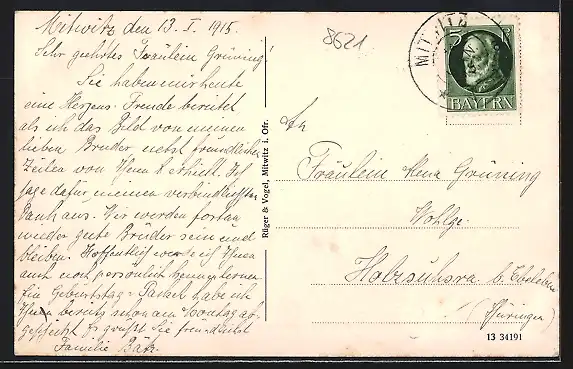 Mitwitz den 13. I. 1915.
Sehr geehrtes Fräulein Grüning!
Sie haben mir heute
eine Herzens-Freude bereitet
als ich das Bild von meinem
lieben Bruder nebst freundlichen
Zeilen von Ihnen erhielt. Ich
sage dafür meinen verbindlichsten
Dank aus. Wir werden fortan
wieder gute Brüder sein und
bleiben. Hoffentlich werde ich Ihnen
auch noch persönlich kennen lernen
Ein Geburtstags-Packet habe ich
Ihnen bereits schon am Montag ab-
geschickt Es grüßt Sie freundlichst
Familie Bätz.
8621
MITWITZ
5
BAYERN
An
Fräulein Grüning
Wohlge.
b. Ebeleben
(Thüringen)
Rüger & Vogel, Mitwitz i. Ofr.
13 34191